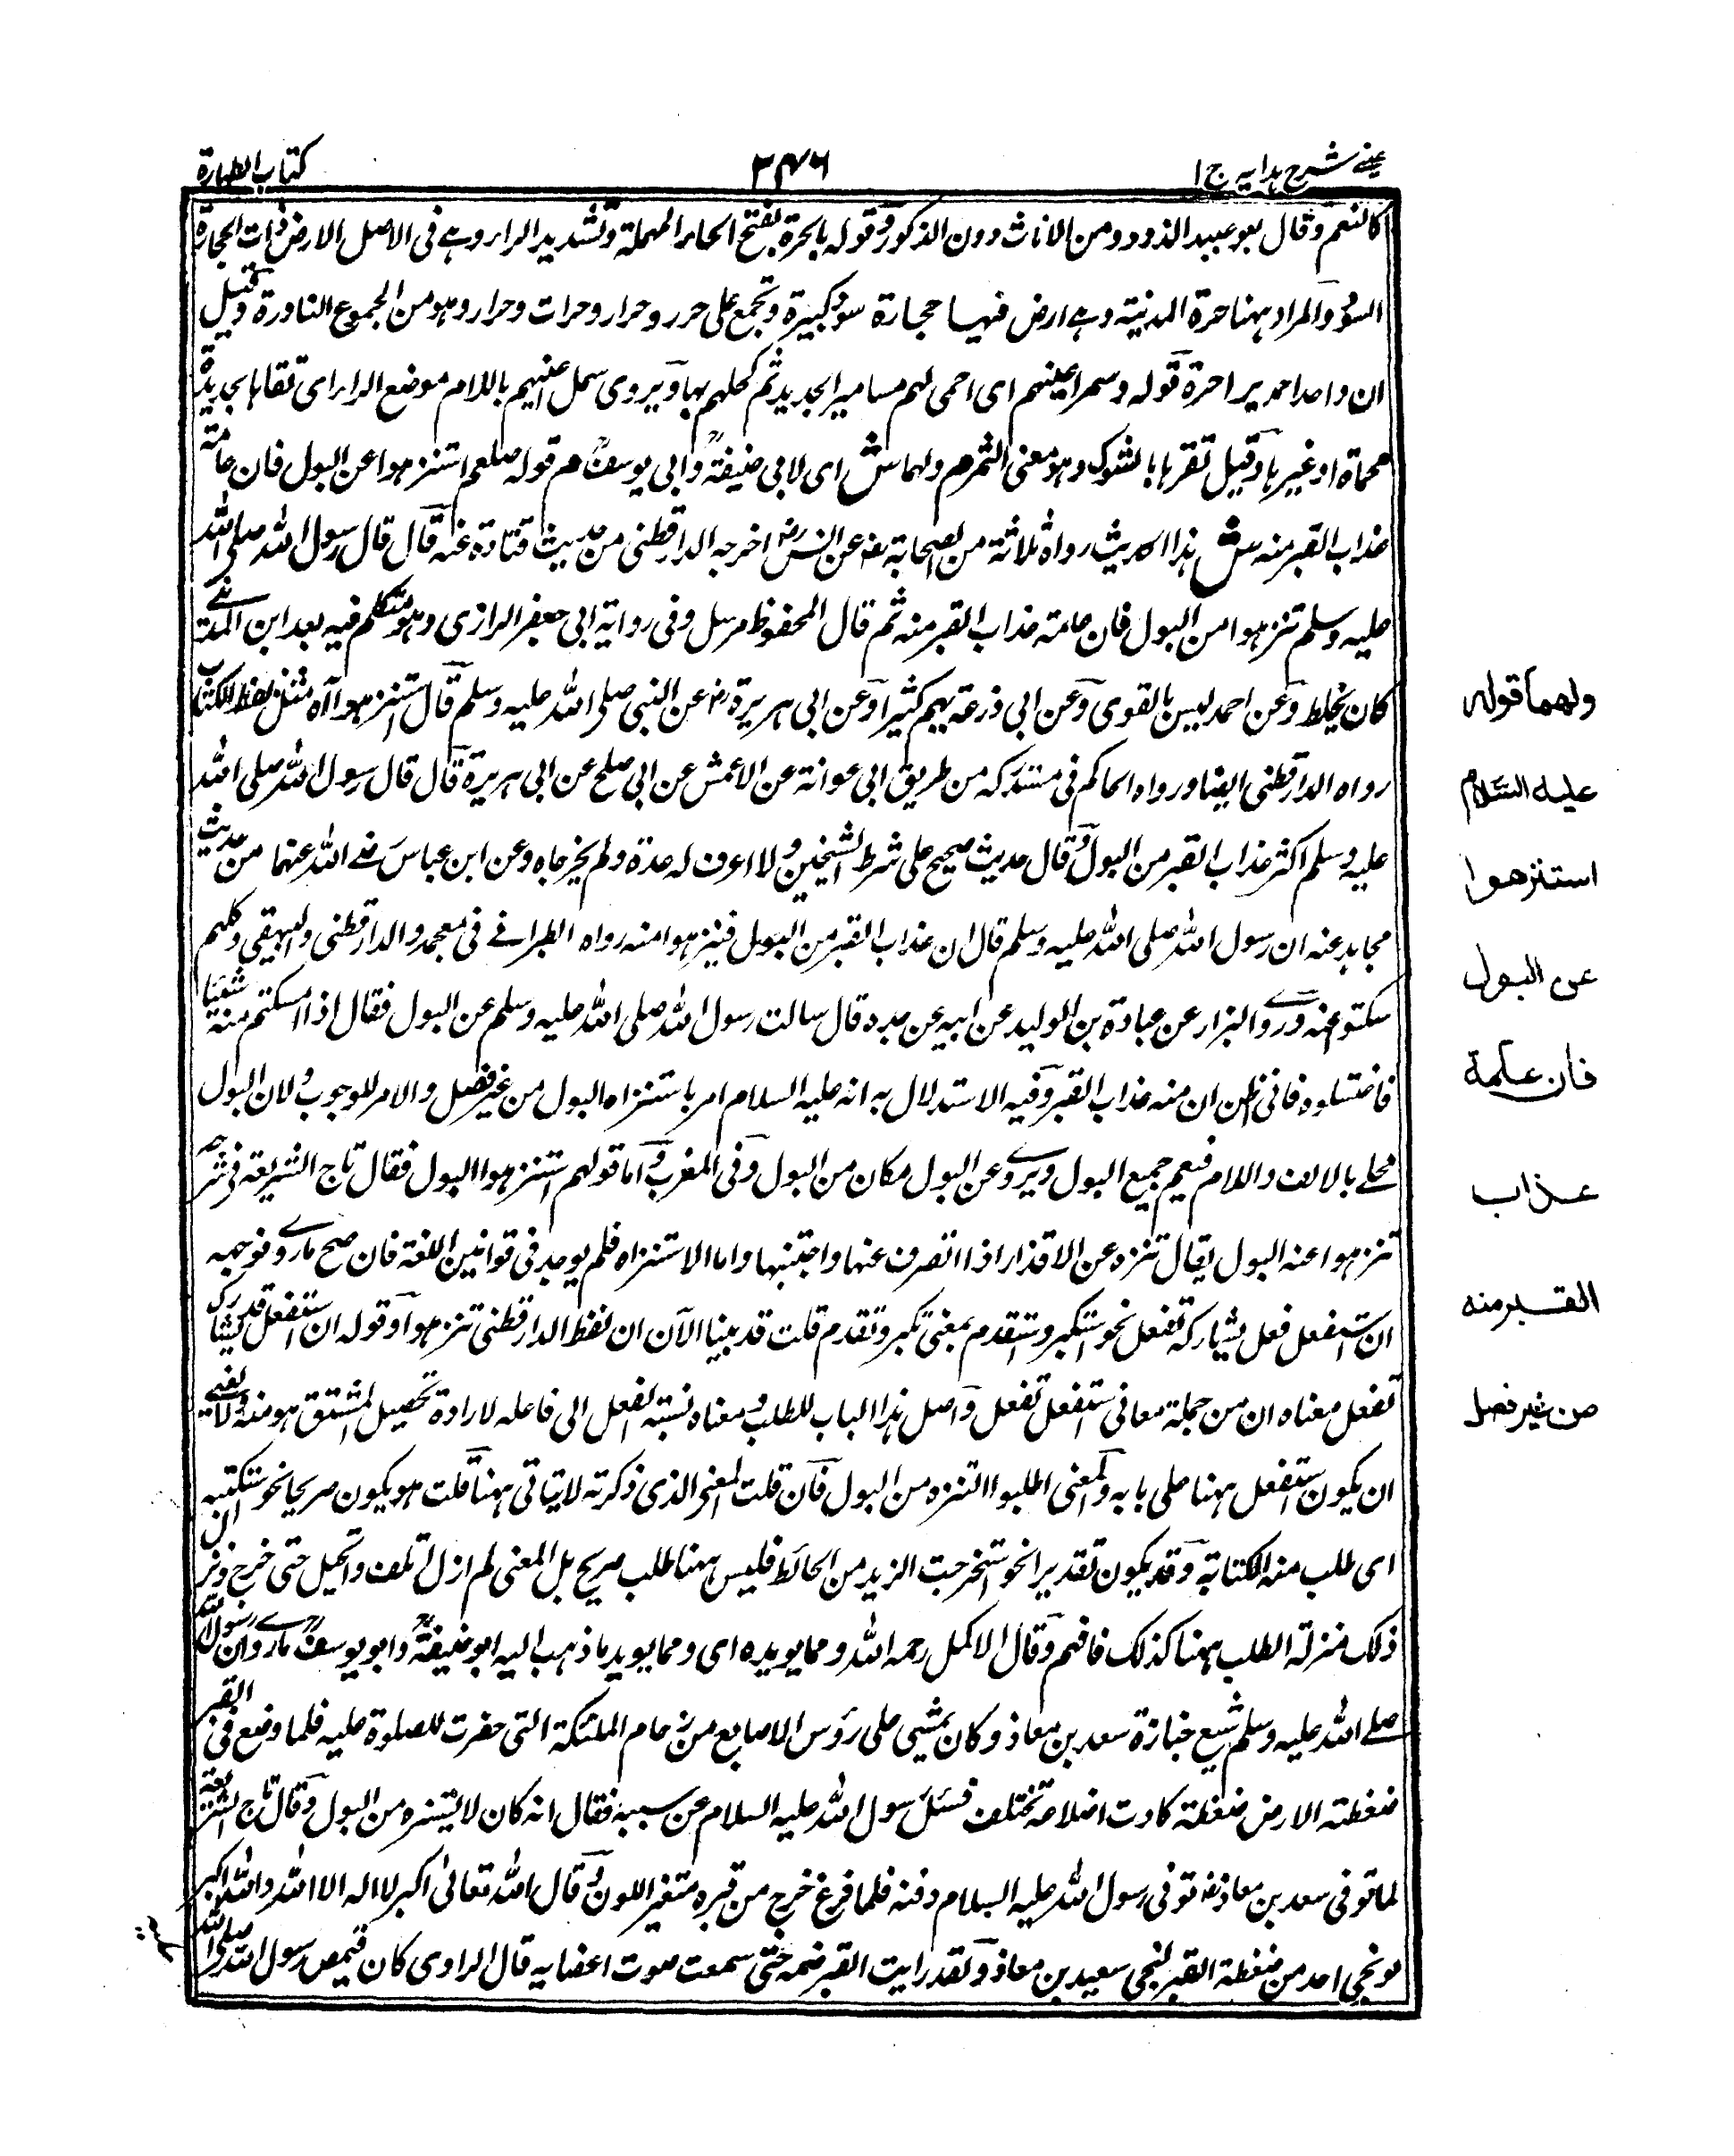 عینے شرح ہدایہ ج ١
٣٤٦
کتاب الطہارة
کالنعم وقال ابو عبید الذود من الاناث دون الذکور وقوله بالحرة بفتح الحاء المهملة وتشدید الراء وہے فی الاصل الارض ذات الحجارة
السود والمراد ہہنا حرة المدینة وہے ارض فیہا حجارة سود کبیرة وتجمع علی حرر وحرار وحرات وحرار وہو من الجموع النادرة وقیل
ان واحد احرین احرة قوله وسمر اعینہم ای احمی لہم مسامیر الحدید ثم کحلہم بہا ویروی سمل اعینہم باللام موضع الراء ای فقاہا بحدیدة
محماة او غیرہا وقیل نقرہا بالشوک وہو معنی السمر م ولہما ش ای لابی حنیفة وابی یوسف م قوله صلعم استنزہوا عن البول فان عامة
عذاب القبر منه ش ہذا الحدیث رواہ ثلاثة من الصحابة عن انس اخرجه الدارقطنی من حدیث قتادة عنه قال قال رسول الله صلی الله
علیه وسلم تنزہوا من البول فان عامة عذاب القبر منه ثم قال المحفوظ مرسل وفی روایة ابی جعفر الرازی وہو متکلم فیه بعد ابن المدینے
کان یخلط وعن احمد لیس بالقوی وعن ابی ذرعة یہم کثیرا وعن ابی ہریرة عن النبی صلی الله علیه وسلم قال استنزہوا آہ مثل لفظ الکتاب
رواہ الدارقطنی ایضا ورواہ الحاکم فی مستدرکه من طریق ابی عوانة عن الاعمش عن ابی صلح عن ابی ہریرة قال قال رسول الله صلی الله
علیه وسلم اکثر عذاب القبر من البول وقال حدیث صحیح علی شرط الشیخین ولا اعرف له علة ولم یخرجاہ وعن ابن عباس رضے الله عنہما من حدیث
مجاہد عنه ان رسول الله صلی الله علیه وسلم قال ان عذاب القبر من البول فتنزہوا منه رواہ الطبرانے فی معجمه والدارقطنی والبیہقی وکلہم
سکتوا عنه وروے البزار عن عبادة بن الولید عن ابیه عن جدہ قال سالت رسول الله صلی الله علیه وسلم عن البول فقال اذا امسکتم منه شیئا
فاغتسلوہ فانی اظن ان منه عذاب القبر وفیه الاستدلال به انه علیه السلام امر باستنزاہ البول من غیر فصل والامر للوجوب ولان البول
محلے بالالف واللام فیعم جمیع البول ویروے عن البول مکان من البول وفی المغرب اما قولہم استنزہوا البول فقال تاج الشریعة فی شرحه
تنزہوا عنه البول یقال تنزہ عن الاقذار اذا انصرف عنہا واجتنبہا واما الاستنزاہ فلم یوجد فی قوانین اللغة فان صح ماروے فوجہه
ان استفعل فعل یشارکه تفعل نحو استکبر واستقدم بمعنی تکبر وتقدم قلت قد بینا الآن ان لفظ الدارقطنی تنزہوا وقوله ان استفعل قد یشارک
تفعل معناہ ان من جملة معانی استفعل تفعل واصل ہذا الباب للطلب ومعناہ نسبة الفعل الی فاعله لارادة تحصیل المشتق ہو منه ولا ینبغے
ان یکون استفعل ہہنا علی بابه والمعنی اطلبوا التنزہ من البول فان قلت المعنی الذی ذکرته لایتاتی ہہنا قلت ہو یکون صریحا نحو استکتبه
ای طلب منه الکتابة وقد یکون تقدیرا نحو استخرجت الزید من الحائط فلیس ہہنا طلب صریح بل المعنی لم ازل اتلطف واتحیل حتی خرج فنزل
ذلک منزلة الطلب ہہنا کذلک فافہم وقال الاکمل رحمه الله ومما یویدہ ای ومما یوید ما ذہب الیه ابو حنیفة وابو یوسف ماروے ان رسول الله
صلے الله علیه وسلم شیع جنازة سعد بن معاذ وکان یمشی علی رؤس الاصابع من زحام الملئکة التی حضرت للصلوة علیه فلما وضع فی القبر
ضغطته الارض ضغطة کادت اضلاعه تختلف فسئل رسول الله علیه السلام عن سببه فقال انه کان لایستنزہ من البول وقال تاج الشریعة
لما توفی سعد بن معاذ تولی رسول الله علیه السلام دفنه فلما فرغ خرج من قبرہ متغیر اللون وقال الله تعالی اکبر لا اله الا الله والله اکبر
لو نجی احد من ضغطة القبر لنجی سعید بن معاذ ولقد رایت القبر ضمه حتی سمعت صوت اعضایه قال الراوی کان قمیص رسول الله صلی الله
ولهما قوله
علیه السّلام
استنزهوا
عن البول
فان عامة
عذاب
القبر منه
من غیر فصل